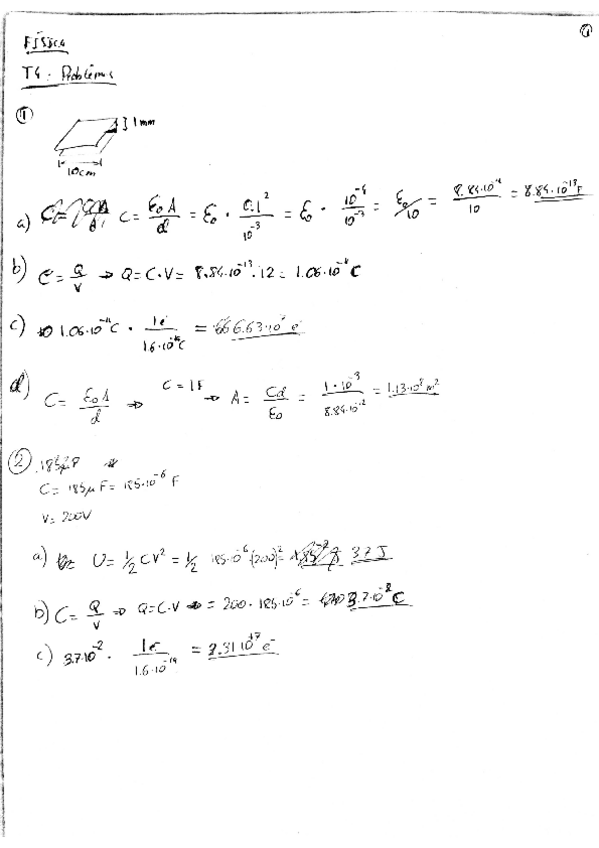 ①
FÍSICA
T4. Problemas
①
1 mm
10cm
a) C = ε₀A/d = ε₀ · 0.1²/10⁻³ = ε₀ · /10⁻³ = ε₀/10 = /10 =
b) C = Q/V → Q = C·V = 8.84·10⁻¹³·12 = C
c) 1.06·10 C · 1e⁻/1.6·10 C =
d) C = ε₀A/d → C = 1F → A = Cd/ε₀ = 1·10⁻³/8.84·10⁻¹² = 1.13·10⁸ m²
②
C = 185μF = 185·10⁻⁶ F
V = 200V
a) U = 1/2 CV² = 1/2 185·10⁻⁶·(200)² = 3.7 J
b) C = Q/V ⇒ Q = C·V = 200·185·10⁻⁶ = 3.7·10⁻² C
c) 3.7·10⁻² · 1e⁻/1.6·10⁻¹⁹ = 2.31·10¹⁷ e⁻